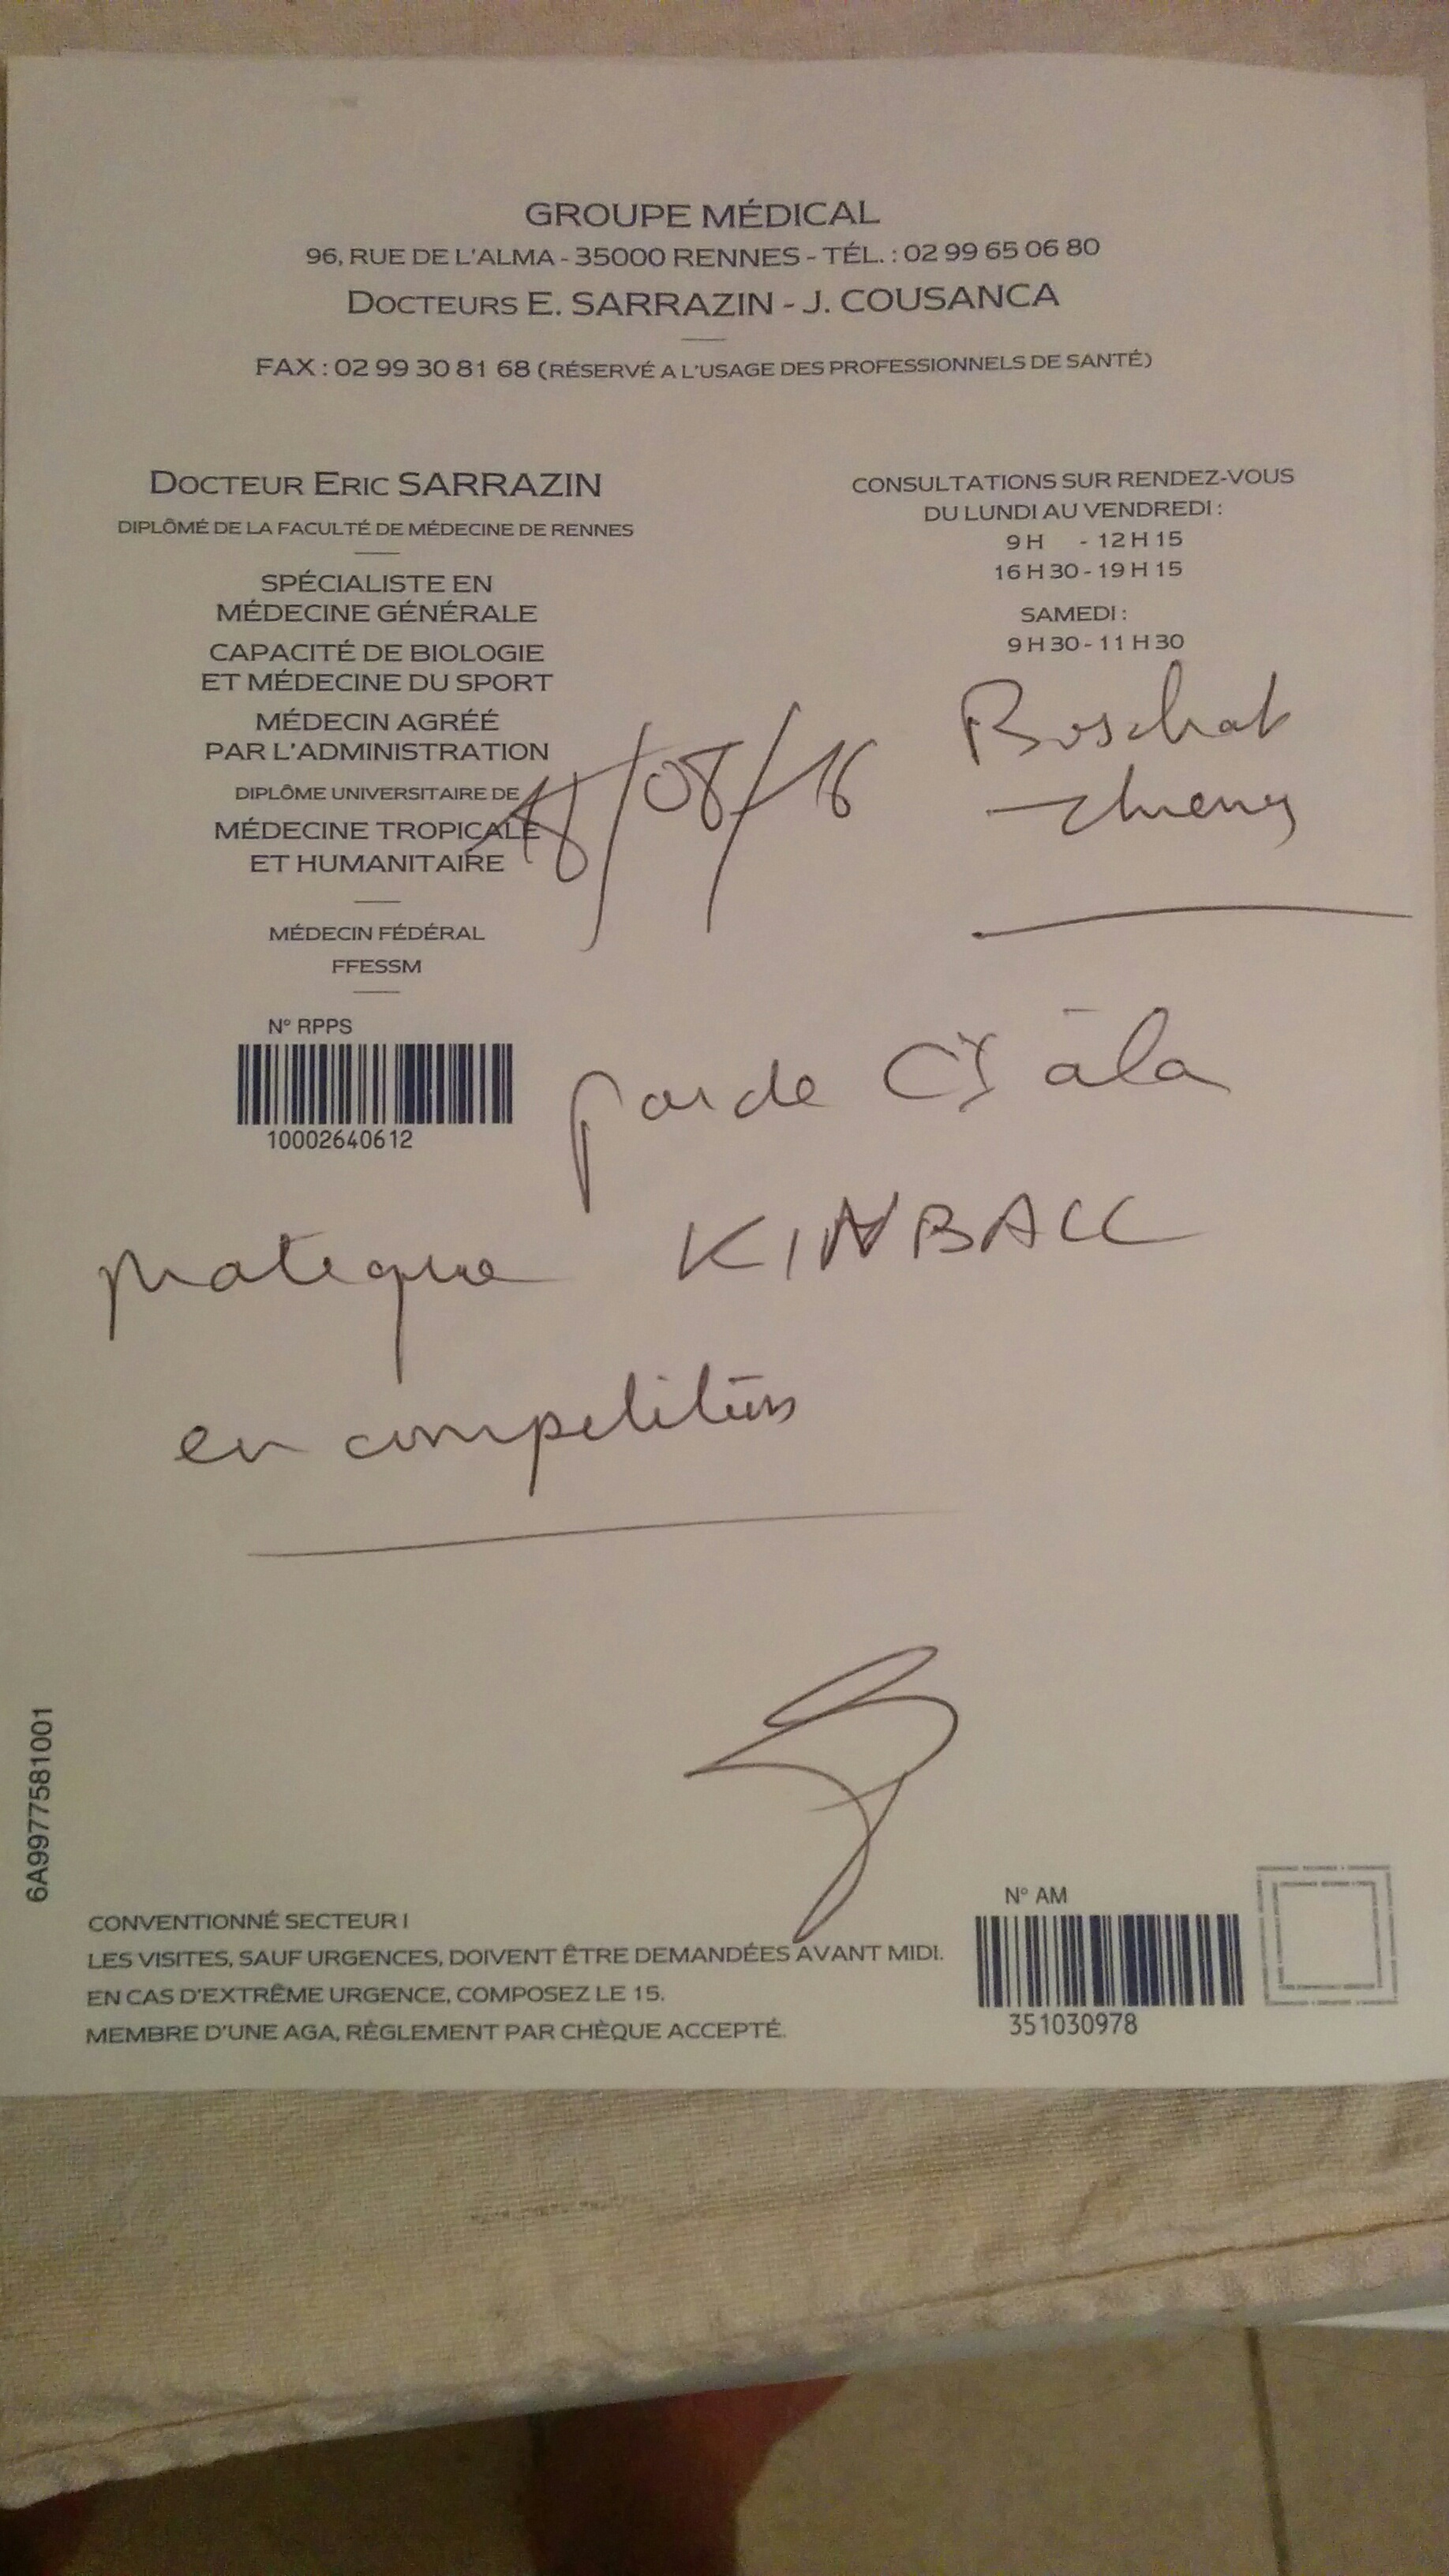 GROUPE MÉDICAL
96, RUE DE L'ALMA - 35000 RENNES - TÉL. : 02 99 65 06 80
DOCTEURS E. SARRAZIN - J. COUSANCA
FAX : 02 99 30 81 68 (RÉSERVÉ A L'USAGE DES PROFESSIONNELS DE SANTÉ)
DOCTEUR ERIC SARRAZIN
DIPLÔMÉ DE LA FACULTÉ DE MÉDECINE DE RENNES
SPÉCIALISTE EN
MÉDECINE GÉNÉRALE
CAPACITÉ DE BIOLOGIE
ET MÉDECINE DU SPORT
MÉDECIN AGRÉÉ
PAR L'ADMINISTRATION
DIPLÔME UNIVERSITAIRE DE
MÉDECINE TROPICALE
ET HUMANITAIRE
MÉDECIN FÉDÉRAL
FFESSM
N° RPPS
10002640612
CONSULTATIONS SUR RENDEZ-VOUS
DU LUNDI AU VENDREDI :
9 H - 12 H 15
16 H 30 - 19 H 15
SAMEDI :
9 H 30 - 11 H 30
/08/16
Boschat
pas de CI à la
pratique KINBALL
en compétition
6A9977581001
CONVENTIONNÉ SECTEUR I
LES VISITES, SAUF URGENCES, DOIVENT ÊTRE DEMANDÉES AVANT MIDI.
EN CAS D'EXTRÊME URGENCE, COMPOSEZ LE 15.
MEMBRE D'UNE AGA, RÈGLEMENT PAR CHÈQUE ACCEPTÉ.
N° AM
351030978